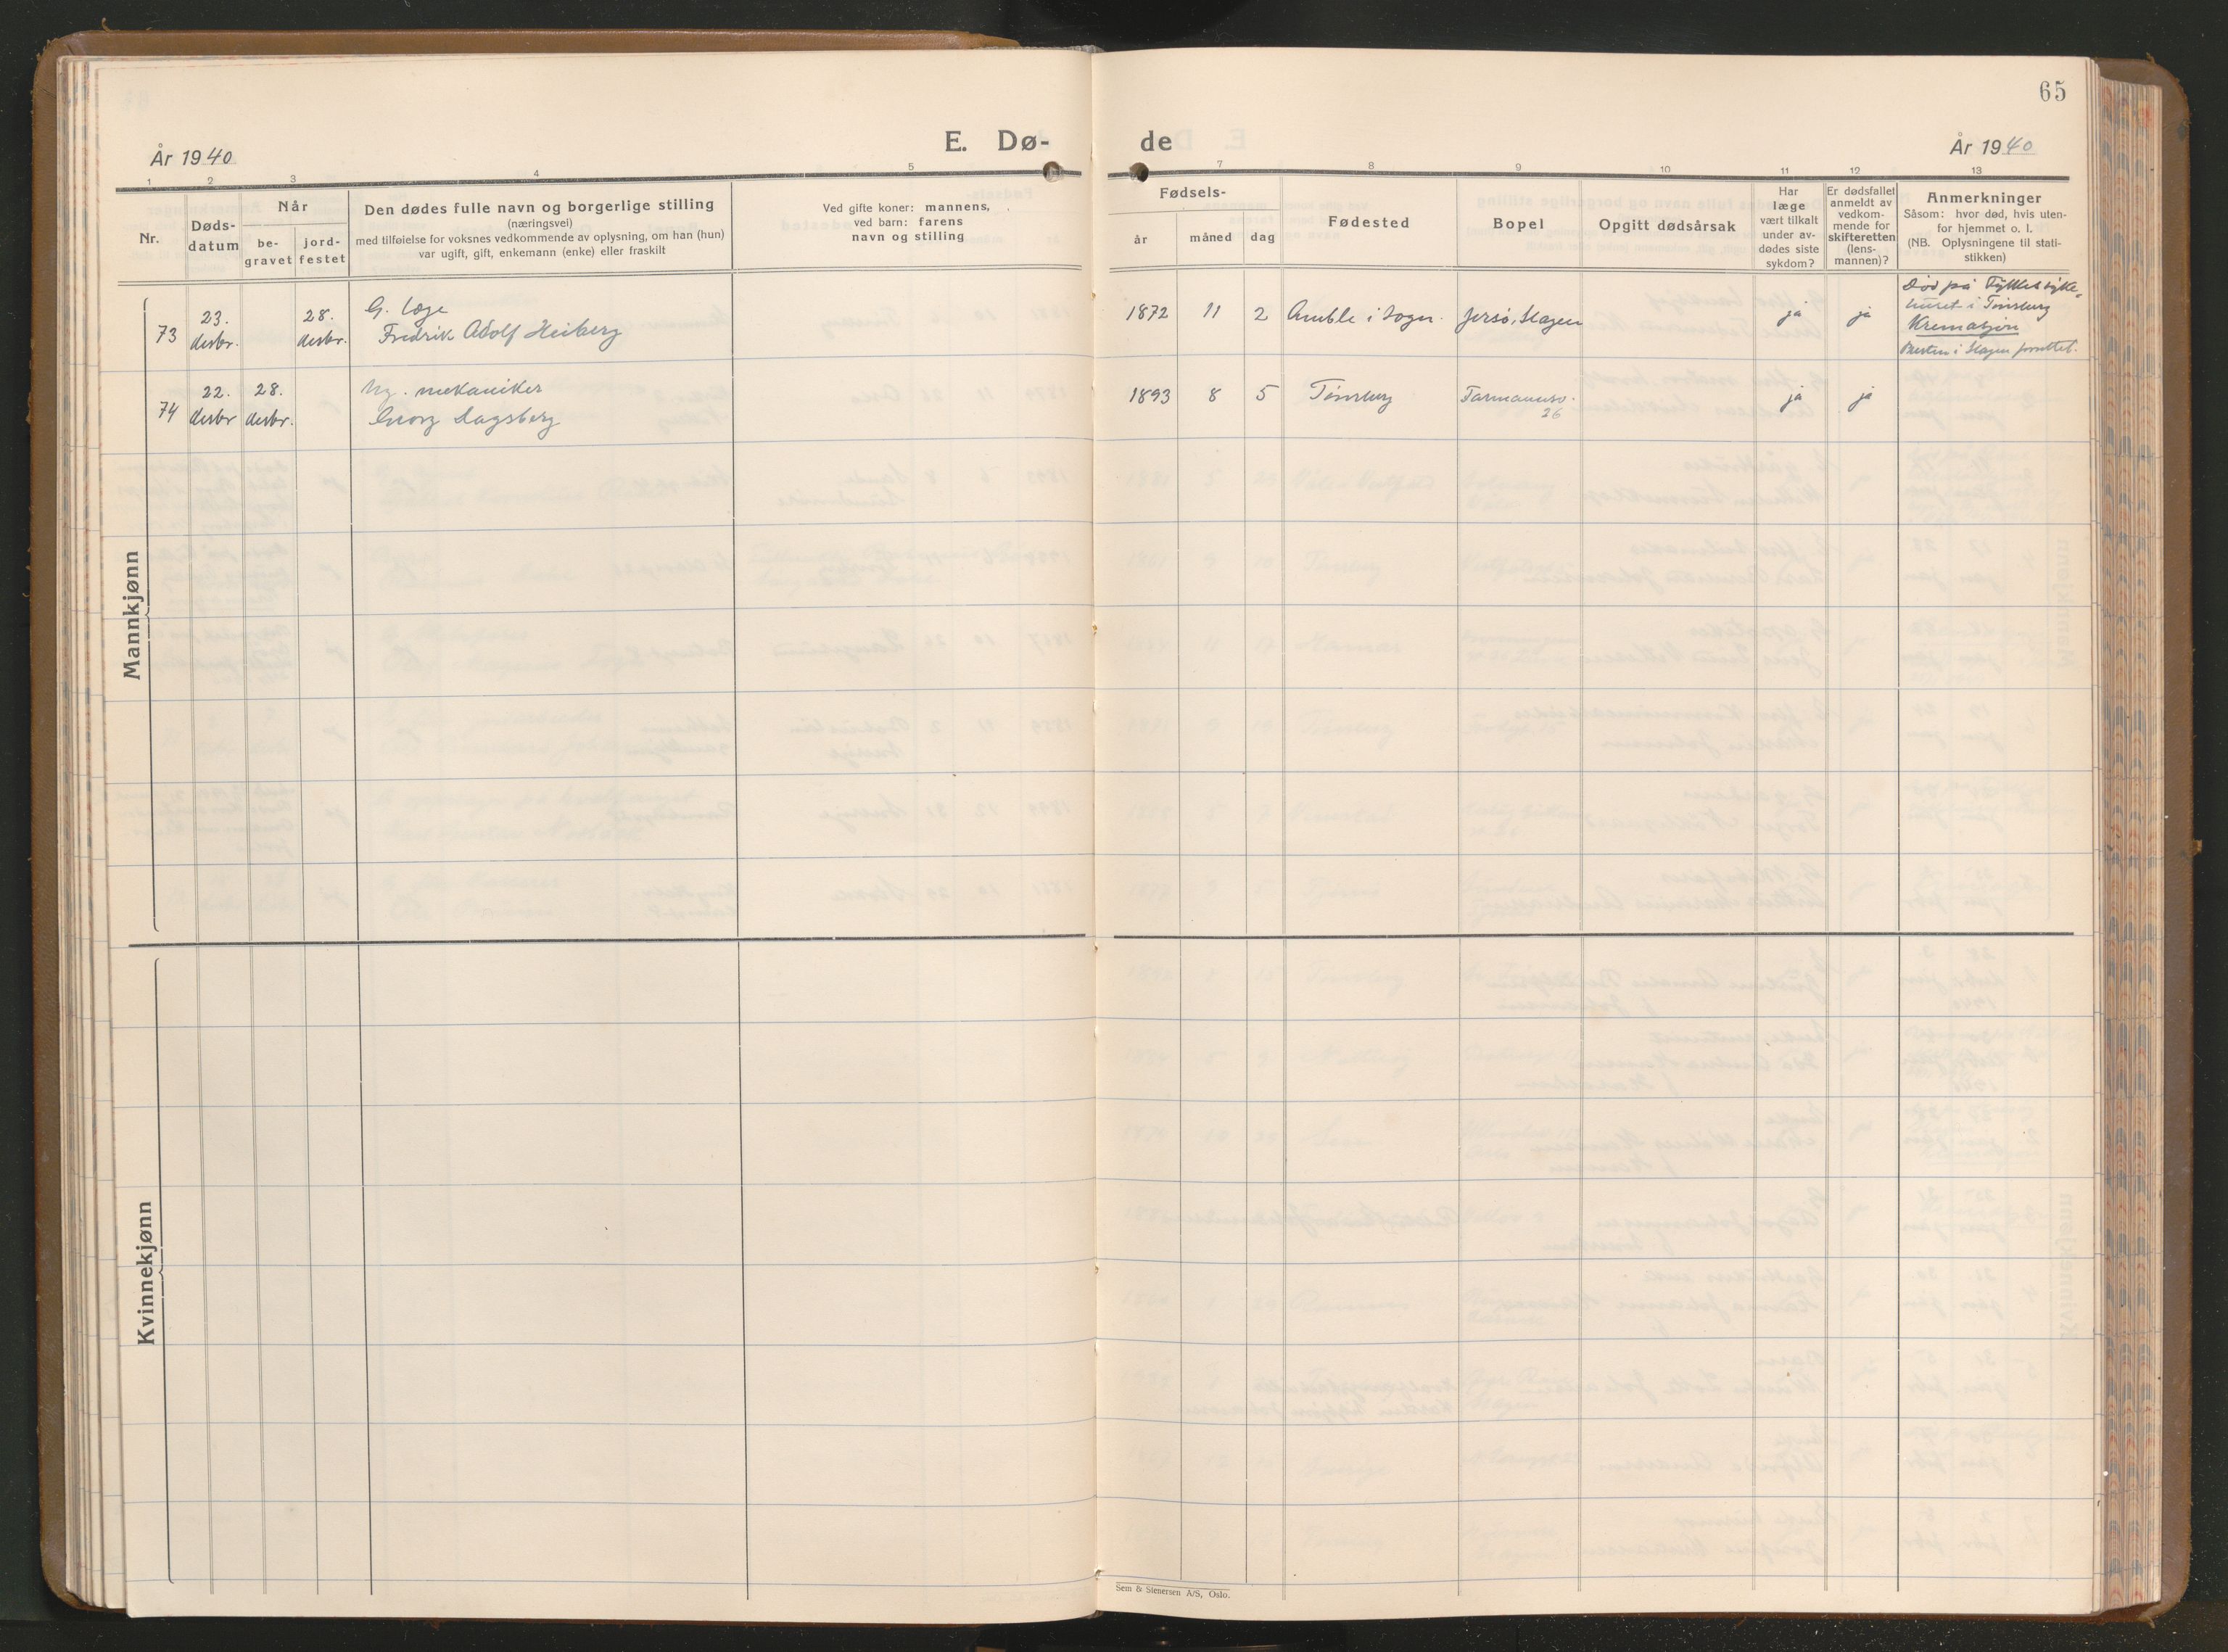 65
År 1940
E. Dø-
de
År 1940
1 2 3 4 5 7 8 9 10 11 12 13
Nr.
Døds-
datum
Når
be-
gravet
jord-
festet
Den dødes fulle navn og borgerlige stilling
(næringsvei)
med tilføielse for voksnes vedkommende av oplysning, om han (hun)
var ugift, gift, enkemann (enke) eller fraskilt
Ved gifte koner: mannens,
ved barn: farens
navn og stilling
Fødsels-
år
måned
dag
Fødested
Bopel
Opgitt dødsårsak
Har
læge
vært tilkalt
under av-
dødes siste
sykdom?
Er dødsfallet
anmeldt av
vedkom-
mende for
skifteretten
(lens-
mannen)?
Anmerkninger
Såsom: hvor død, hvis uten-
for hjemmet o. l.
(NB. Oplysningene til stati-
stikken)
Mannkjønn
73
23.
desbr.
28.
desbr.
G. læge
Fredrik Adolf Heiberg
1872 11 2 Amble i Sogn. Jersø, Slagen ja ja
Død på Fylkets syke-
huset i Tønsberg
Kremasjon
Presten i Slagen forrettet.
74
22.
desbr
28.
desbr.
Ug. mekaniker
Georg Dagsberg
1893 8 5 Tønsberg Farmannsv.
26
ja ja
Kvinnekjønn
Sem & Stenersen A/S, Oslo.